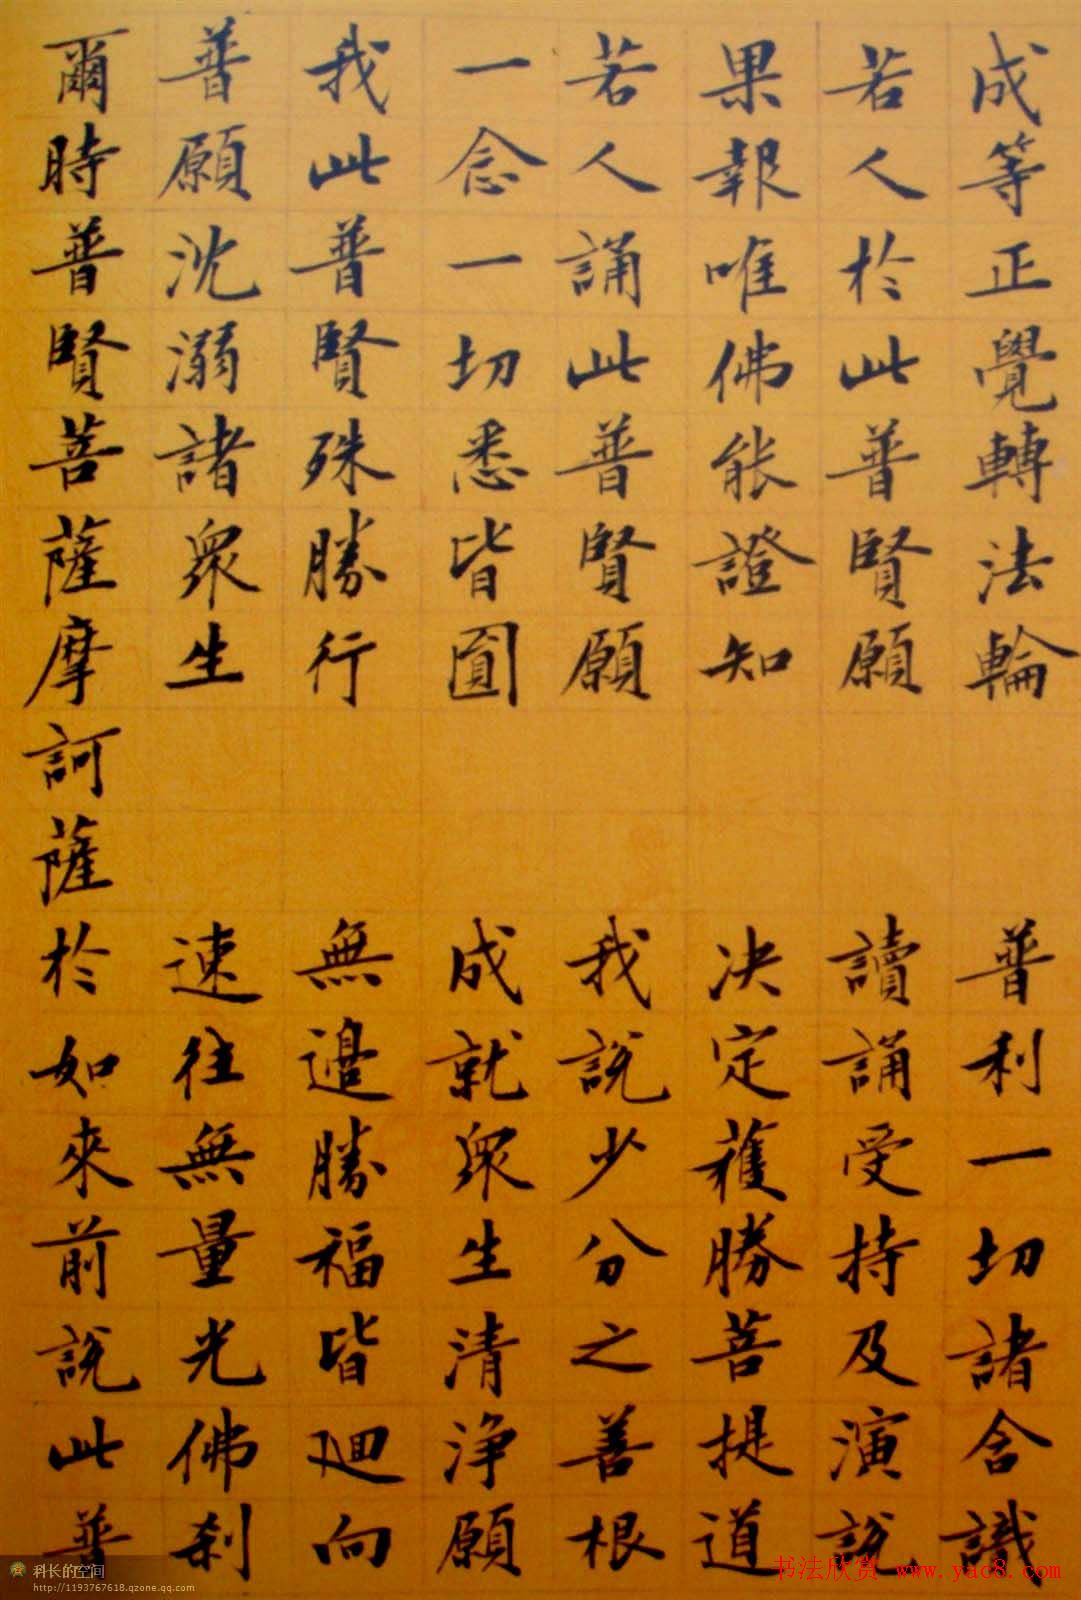 成等正覺轉法輪 普利一切諸含識
若人於此普賢願 讀誦受持及演說
果報唯佛能證知 决定獲勝菩提道
若人誦此普賢願 我說少分之善根
一念一切悉皆圓 成就眾生清淨願
我此普賢殊勝行 無邊勝福皆迴向
普願沈溺諸眾生 速往無量光佛刹
爾時普賢菩薩摩訶薩於如來前說此普
科长的空间
http://1193767618.qzone.qq.com
书法欣赏 www.yac8.com